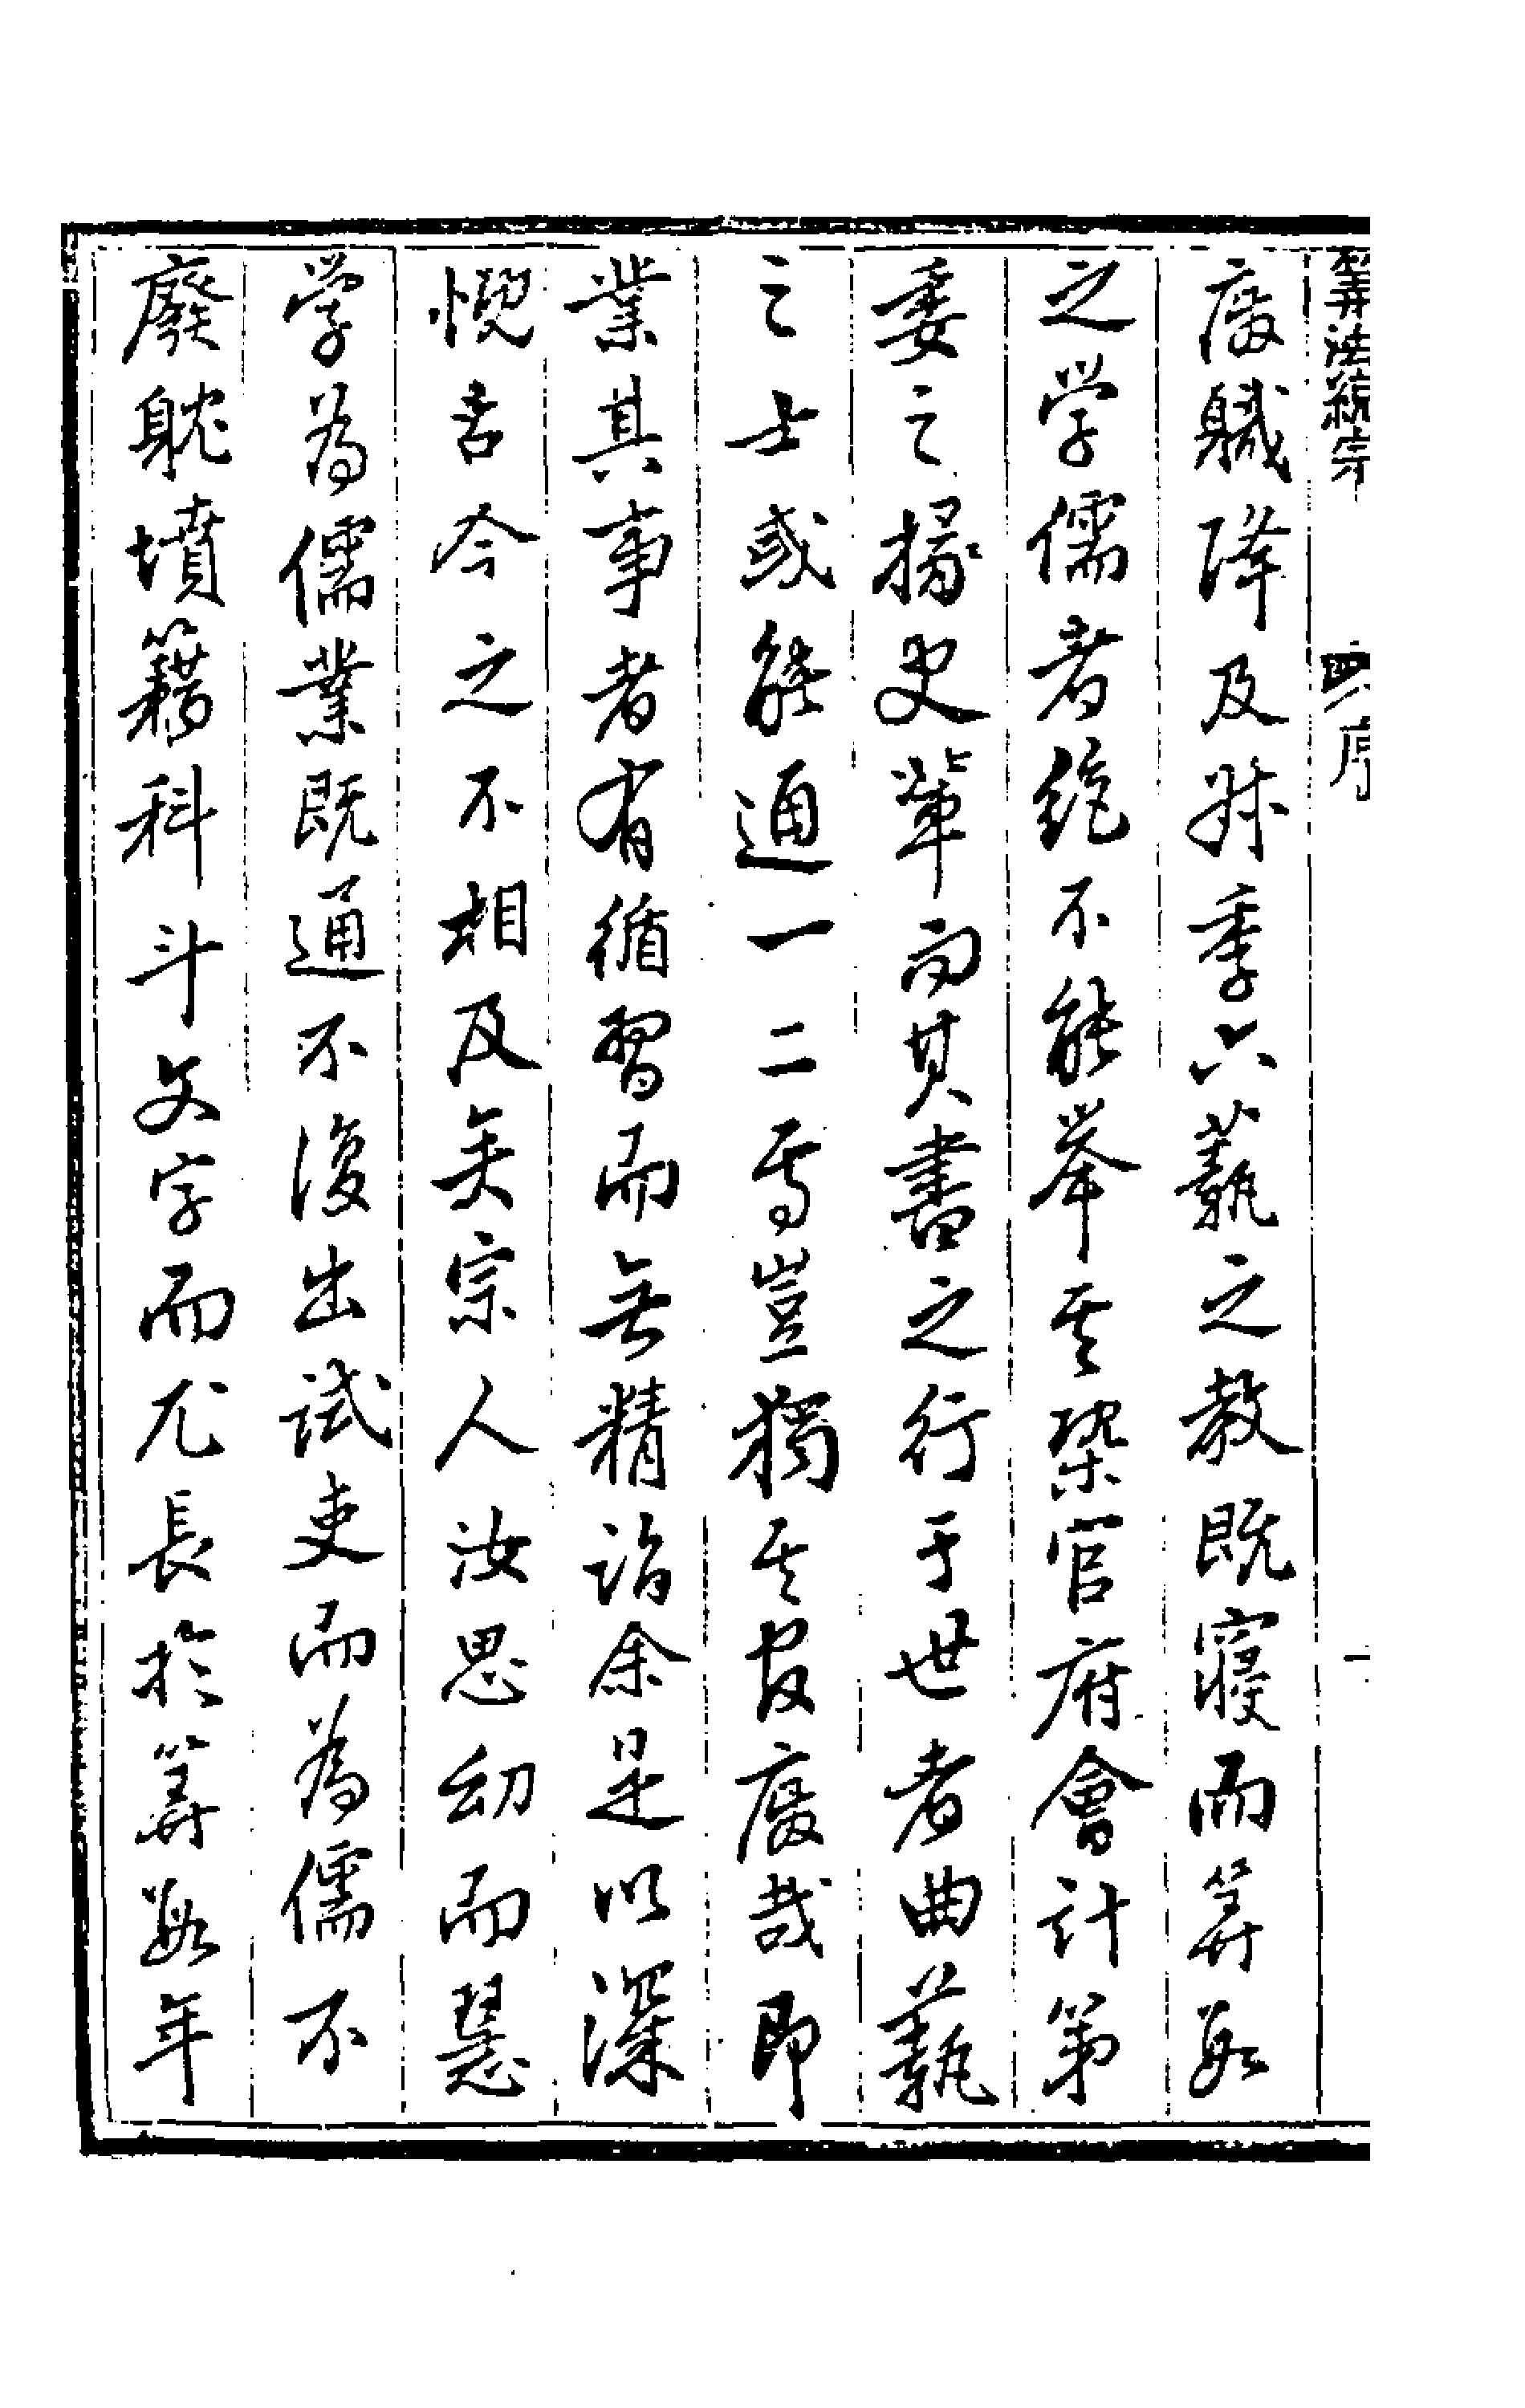 算法統宗 序 一
廢職降及叔季六藝之教既寢而筭數
之學儒者絕不能舉其槩官府會計第
委之掾史輩而其書之行于世者曲藝
之士或能通一二焉豈獨其官廢哉即
業其事者有循習而無精詣余是以深
慨古今之不相及矣宗人汝思幼而慧
學為儒業既通不復出試吏而為儒不
廢躭墳籍科斗文字而尤長於筭數年